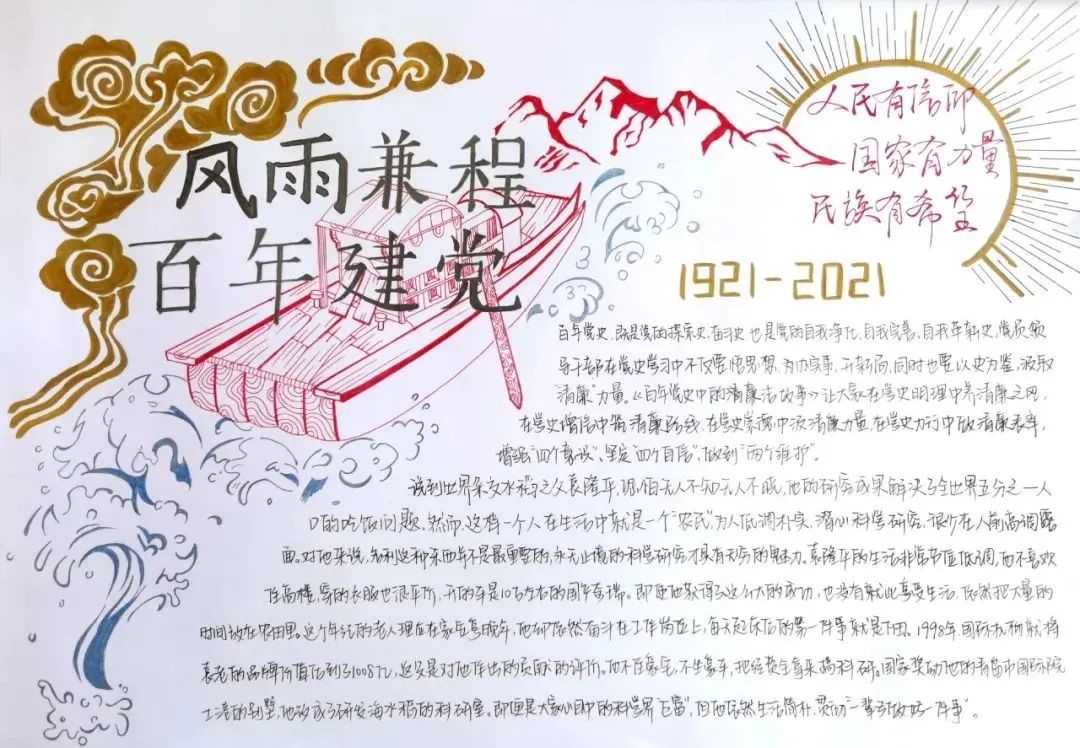 风雨兼程
百年建党
人民有信仰
国家有力量
民族有希望
1921-2021
百年党史，既是党的探索史，奋斗史，也是党的自我净化，自我完善，自我革新史，党员领
导干部在党史学习中不仅要悟思想，为办实事，开新局，同时也要以史为鉴，汲取
"清廉"力量。《百年党史中的清廉志故事》让大家在学史明理中养清廉之风，
在学史增信中筑清廉防线，在学史崇德中汲清廉力量，在学史力行中做清廉表率，
增强"四个意识"、坚定"四个自信"、做到"两个维护"。
说到世界杂交水稻之父袁隆平，恐怕无人不知无人不晓，他的研究成果解决了全世界五分之一人
口的吃饭问题，然而，这样一个人在生活中就是一个"农民"，为人低调朴实，潜心科学研究，很少在人前高调露
面。对他来说，名利这种东西并不是最重要的，永无止境的科学研究才具有无穷的魅力。袁隆平的生活非常节俭低调，他不喜欢
住高楼，穿的衣服也很平价，开的车是10万左右的国产奇瑞。即便他获得了这么大的成功，也没有就此享受生活，依然把大量的
时间放在农田里。这个年纪的老人理应在家安享晚年，他却依然奋斗在工作岗位上，每天起床后的第一件事就是下田。1998年，国际机构就将
袁老的品牌价值估到了1008亿，这只是对他作出的贡献的评价。他不住豪宅，不坐豪车，把经费全拿来搞科研。国家奖励他的青岛市国际院
士港的别墅，他改成了研发海水稻的科研室。即便是大家心目中的科学界"巨富"，但他依然生活简朴，贯彻"一辈子做好一件事"。